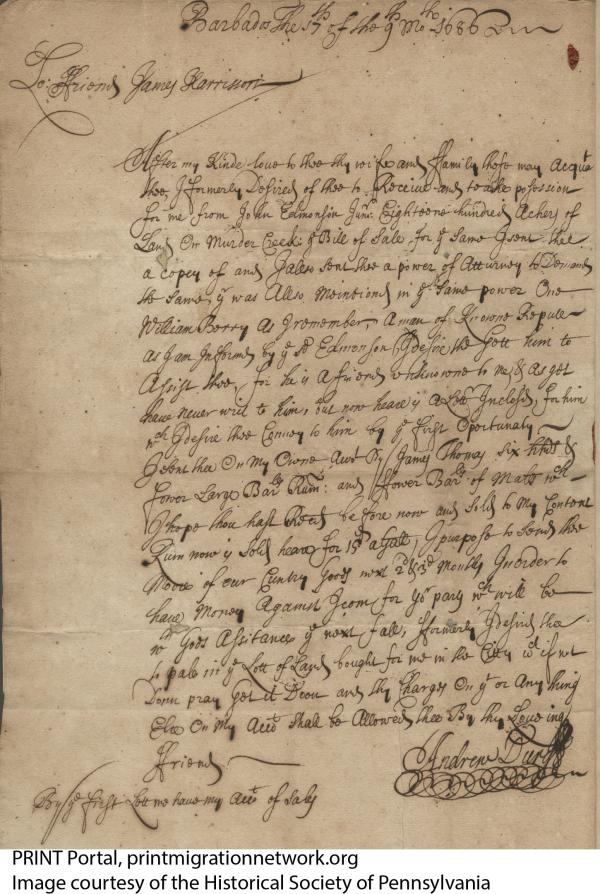 Barbados The 17th of the 9th Mo:th 1686
To: Ffriend James Harrison
After my Kinde love to thee thy wife and ffamily these may Acqut
thee I formerly Desired of thee to Receive and to take possession
for me from John Edmonson Junr: Eighteene hundred Achers of
Land On Murder Creek: ye Bill of Sale for ye Same I sent thee
a copey of and I also sent thee a power of Atturney to Demand
the Same, yt was Allso Meintiond in ye Same power One
William Berry As I remember, A man of Knowne Repute
as I am Informd by ye sd Edmonson I desire thee Gett him to
Assist thee, for he is a friend unknowne to me & As yet
have never writ to him, but now heare is a Lettr Inclosed, for him
wch I desire thee Convey to him by ye First Oportunaty
I sent thee On My Owne Acct By James Thomas six hhds &
fower Large Barls Rum: and ffower Barls of Malls wch
I hope thou hast Recd before now and Sold to My Content
Rum now is Sold heare for 15d a Gall, I purpose to Send thee
Moore of our Cuntry Goods next 2d & 3d Monthly In order to
have Money Against I com for yor party wch will be
wth Gods Assistance ye next fall, fformerly I desired thee
to pale in ye Lott of Land bought for me in the Citty wch if not
Donn pray Get it Doon and thy Charges On yt or Any thing
Else On My Acct Shall be Allowed thee By thy Loveing
Ffriend
Andrew
By ye first Lett me have my Acct of Sales
PRINT Portal, printmigrationnetwork.org
Image courtesy of the Historical Society of Pennsylvania